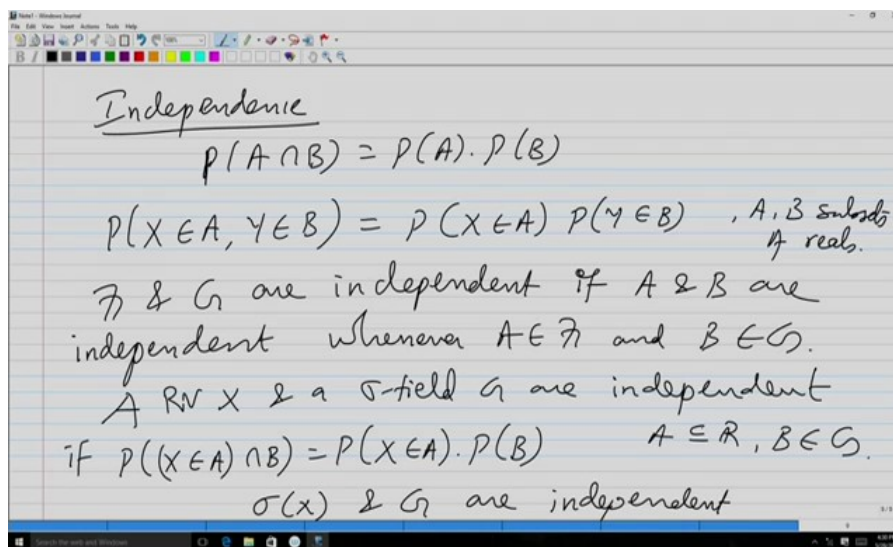 Note1 - Windows Journal
File Edit View Insert Actions Tools Help
Independence
P(A ∩ B) = P(A). P(B)
P(X ∈ A, Y ∈ B) = P(X ∈ A) P(Y ∈ B) , A, B subsets
of reals.
F & G are independent if A & B are
independent whenever A ∈ F and B ∈ G.
A RV X & a σ-field G are independent
if P((X ∈ A) ∩ B) = P(X ∈ A). P(B) A ⊆ R, B ∈ G.
σ(X) & G are independent
Search the web and Windows